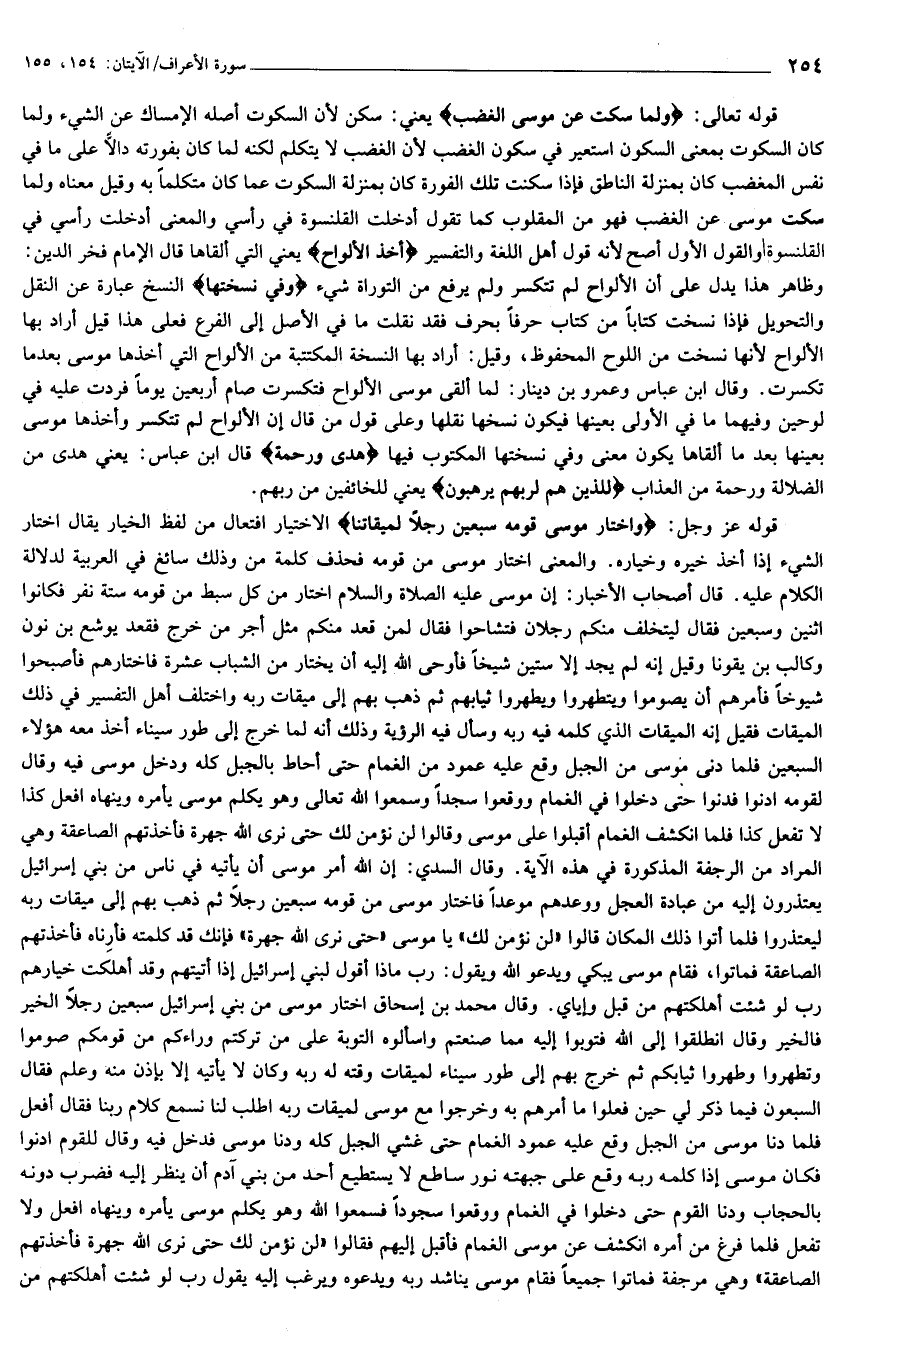 ٢٥٤ سورة الأعراف/ الآيتان: ١٥٤، ١٥٥
قوله تعالى: ﴿ولما سكت عن موسى الغضب﴾ يعني: سكن لأن السكوت أصله الإمساك عن الشيء ولما
كان السكوت بمعنى السكون استعير في سكون الغضب لأن الغضب لا يتكلم لكنه لما كان بفورته دالاً على ما في
نفس المغضب كان بمنزلة الناطق فإذا سكنت تلك الفورة كان بمنزلة السكوت عما كان متكلماً به وقيل معناه ولما
سكت موسى عن الغضب فهو من المقلوب كما تقول أدخلت القلنسوة في رأسي والمعنى أدخلت رأسي في
القلنسوة والقول الأول أصح لأنه قول أهل اللغة والتفسير ﴿أخذ الألواح﴾ يعني التي ألقاها قال الإمام فخر الدين:
وظاهر هذا يدل على أن الألواح لم تتكسر ولم يرفع من التوراة شيء ﴿وفي نسختها﴾ النسخ عبارة عن النقل
والتحويل فإذا نسخت كتاباً من كتاب حرفاً بحرف فقد نقلت ما في الأصل إلى الفرع فعلى هذا قيل أراد بها
الألواح لأنها نسخت من اللوح المحفوظ، وقيل: أراد بها النسخة المكتتبة من الألواح التي أخذها موسى بعدما
تكسرت. وقال ابن عباس وعمرو بن دينار: لما ألقى موسى الألواح فتكسرت صام أربعين يوماً فردت عليه في
لوحين وفيهما ما في الأولى بعينها فيكون نسخها نقلها وعلى قول من قال إن الألواح لم تتكسر وأخذها موسى
بعينها بعد ما ألقاها يكون معنى وفي نسختها المكتوب فيها ﴿هدى ورحمة﴾ قال ابن عباس: يعني هدى من
الضلالة ورحمة من العذاب ﴿للذين هم لربهم يرهبون﴾ يعني للخائفين من ربهم.
قوله عز وجل: ﴿واختار موسى قومه سبعين رجلاً لميقاتنا﴾ الاختيار افتعال من لفظ الخيار يقال اختار
الشيء إذا أخذ خيره وخياره. والمعنى اختار موسى من قومه فحذف كلمة من وذلك سائغ في العربية لدلالة
الكلام عليه. قال أصحاب الأخبار: إن موسى عليه الصلاة والسلام اختار من كل سبط من قومه ستة نفر فكانوا
اثنين وسبعين فقال ليتخلف منكم رجلان فتشاحوا فقال لمن قعد منكم مثل أجر من خرج فقعد يوشع بن نون
وكالب بن يقونا وقيل إنه لم يجد إلا ستين شيخاً فأوحى الله إليه أن يختار من الشباب عشرة فاختارهم فأصبحوا
شيوخاً فأمرهم أن يصوموا ويتطهروا ويطهروا ثيابهم ثم ذهب بهم إلى ميقات ربه واختلف أهل التفسير في ذلك
الميقات فقيل إنه الميقات الذي كلمه فيه ربه وسأل فيه الرؤية وذلك أنه لما خرج إلى طور سيناء أخذ معه هؤلاء
السبعين فلما دنى موسى من الجبل وقع عليه عمود من الغمام حتى أحاط بالجبل كله ودخل موسى فيه وقال
لقومه ادنوا فدنوا حتى دخلوا في الغمام ووقعوا سجداً وسمعوا الله تعالى وهو يكلم موسى يأمره وينهاه افعل كذا
لا تفعل كذا فلما انكشف الغمام أقبلوا على موسى وقالوا لن نؤمن لك حتى نرى الله جهرة فأخذتهم الصاعقة وهي
المراد من الرجفة المذكورة في هذه الآية. وقال السدي: إن الله أمر موسى أن يأتيه في ناس من بني إسرائيل
يعتذرون إليه من عبادة العجل ووعدهم موعداً فاختار موسى من قومه سبعين رجلاً ثم ذهب بهم إلى ميقات ربه
ليعتذروا فلما أتوا ذلك المكان قالوا «لن نؤمن لك» يا موسى «حتى نرى الله جهرة» فإنك قد كلمته فأرناه فأخذتهم
الصاعقة فماتوا، فقام موسى يبكي ويدعو الله ويقول: رب ماذا أقول لبني إسرائيل إذا أتيتهم وقد أهلكت خيارهم
رب لو شئت أهلكتهم من قبل وإياي. وقال محمد بن إسحاق اختار موسى من بني إسرائيل سبعين رجلاً الخير
فالخير وقال انطلقوا إلى الله فتوبوا إليه مما صنعتم واسألوه التوبة على من تركتم وراءكم من قومكم صوموا
وتطهروا وطهروا ثيابكم ثم خرج بهم إلى طور سيناء لميقات وقته له ربه وكان لا يأتيه إلا بإذن منه وعلم فقال
السبعون فيما ذكر لي حين فعلوا ما أمرهم به وخرجوا مع موسى لميقات ربه اطلب لنا نسمع كلام ربنا فقال أفعل
فلما دنا موسى من الجبل وقع عليه عمود الغمام حتى غشي الجبل كله ودنا موسى فدخل فيه وقال للقوم ادنوا
فكان موسى إذا كلمه ربه وقع على جبهته نور ساطع لا يستطيع أحد من بني آدم أن ينظر إليه فضرب دونه
بالحجاب ودنا القوم حتى دخلوا في الغمام ووقعوا سجوداً فسمعوا الله وهو يكلم موسى يأمره وينهاه افعل ولا
تفعل فلما فرغ من أمره انكشف عن موسى الغمام فأقبل إليهم فقالوا «لن نؤمن لك حتى نرى الله جهرة فأخذتهم
الصاعقة» وهي مرجفة فماتوا جميعاً فقام موسى يناشد ربه ويدعوه ويرغب إليه يقول رب لو شئت أهلكتهم من